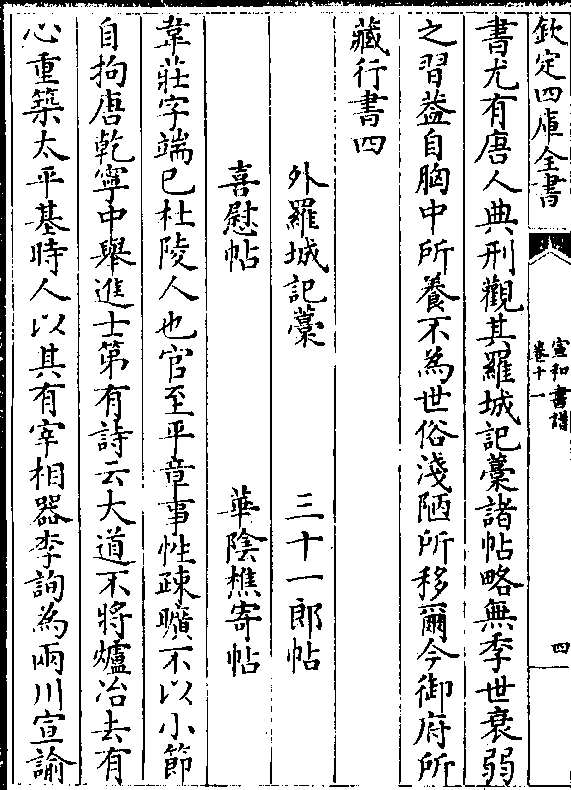 欽定四庫全書
宣和書譜
卷十一
四
書尤有唐人典刑觀其羅城記藁諸帖略無季世衰弱
之習葢自胸中所養不為世俗淺陋所移爾今御府所
藏行書四
外羅城記藁
三十一郎帖
喜慰帖
華陰樵寄帖
韋莊字端巳杜陵人也官至平章事性疎曠不以小節
自拘唐乾寧中舉進士第有詩云大道不將爐冶去有
心重築太平基時人以其有宰相器李詢為兩川宣諭